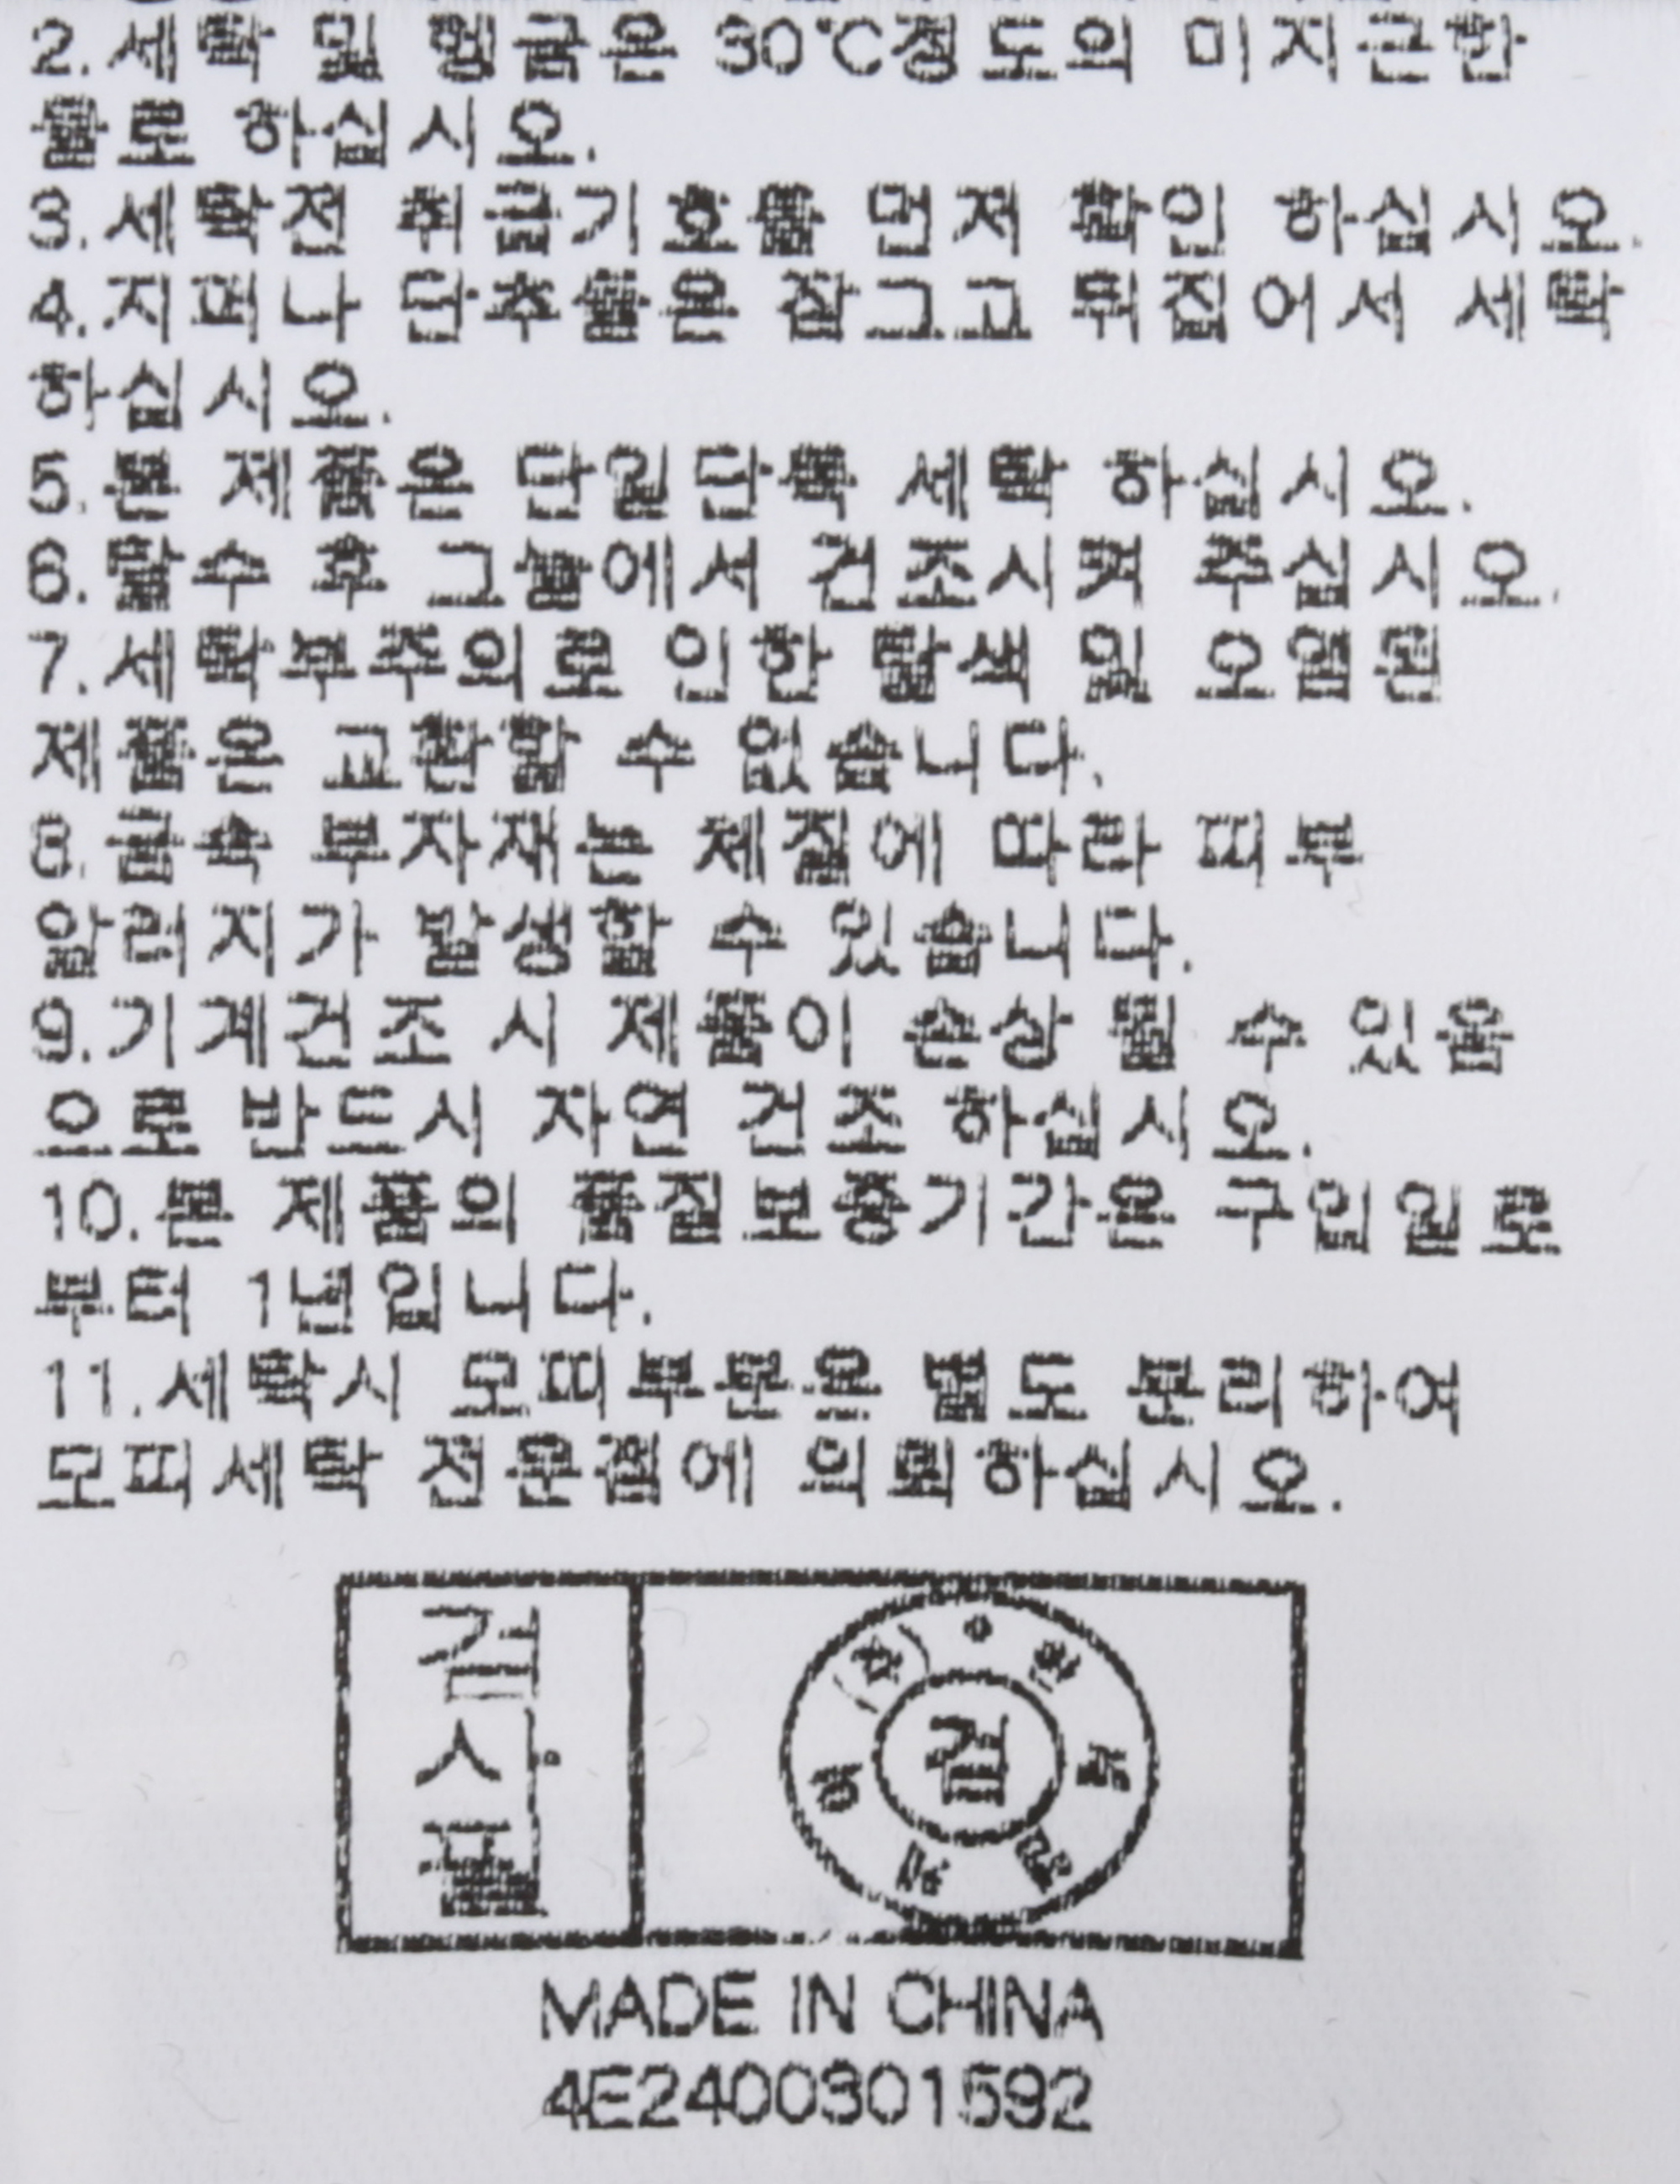 2.세탁 및 헹굼은 30℃정도의 미지근한
물로 하십시오.
3.세탁전 취급기호를 먼저 확인 하십시오.
4.지퍼나 단추들은 잠그고 뒤집어서 세탁
하십시오.
5.본 제품은 단일단독 세탁 하십시오.
6.탈수 후 그늘에서 건조시켜 주십시오.
7.세탁부주의로 인한 탈색 및 오염된
제품은 교환할 수 없습니다.
8.금속 부자재는 체질에 따라 피부
알러지가 발생할 수 있습니다.
9.기계건조 시 제품이 손상 될 수 있음
으로 반드시 자연 건조 하십시오.
10.본 제품의 품질보증기간은 구입일로
부터 1년입니다.
11.세탁시 모피부분은 별도 분리하여
모피세탁 전문점에 의뢰하십시오.
검사품
검
MADE IN CHINA
4E2400301592